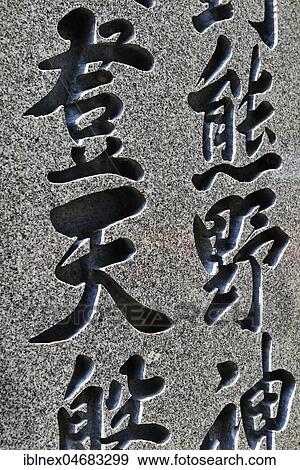 熊野神
登天般
fotosearch
iblnex04683299 www.fotosearch.com